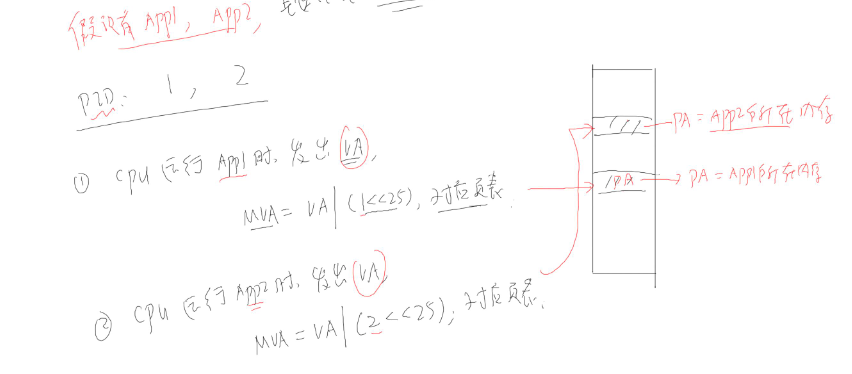 假设有App1, App2,
PID: 1, 2
① CPU运行App1时, 发出VA,
MVA = VA | (1<<25), 对应页表.
② CPU运行App2时, 发出VA
MVA = VA | (2<<25), 对应页表.
PA = App2所在内存
PA = App1所在内存